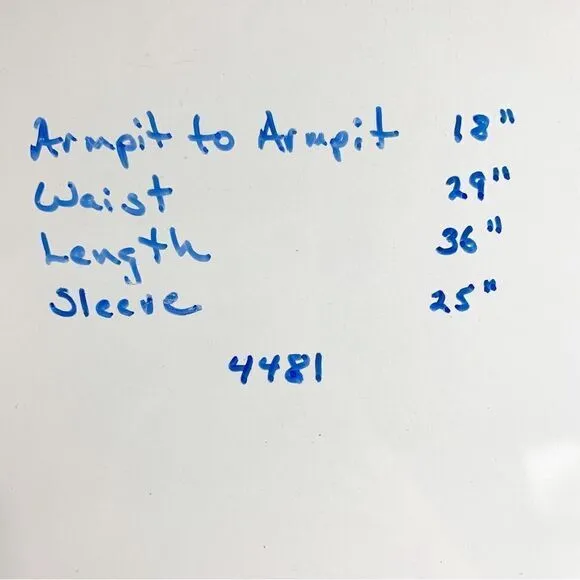 Armpit to Armpit 18"
Waist 29"
Length 36"
Sleeve 25"
4481